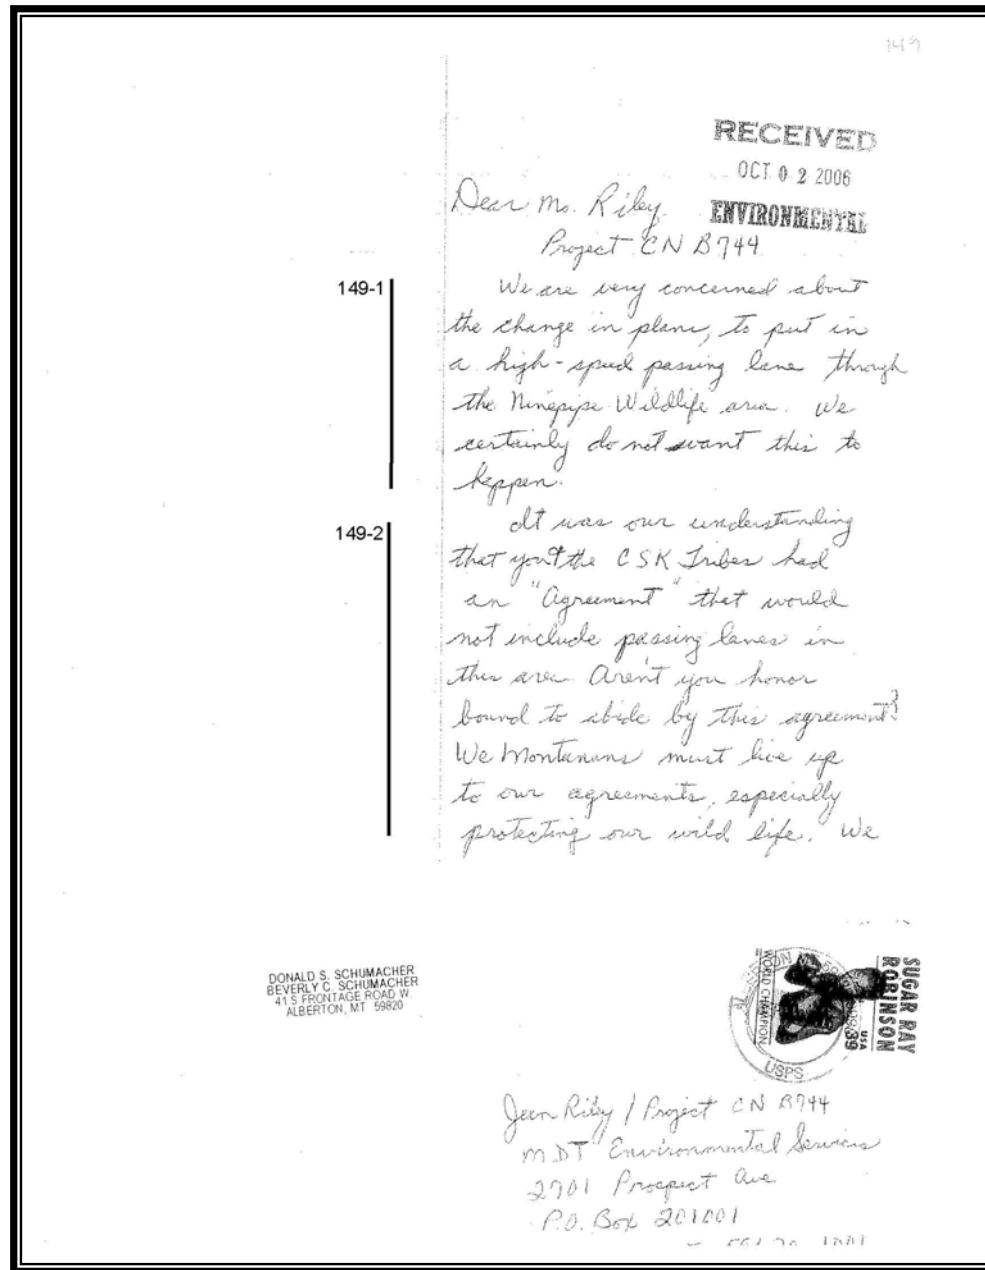 149
RECEIVED
OCT 0 2 2006
ENVIRONMENTAL
Dear Ms. Riley
Project CN B744
149-1
We are very concerned about
the change in plans, to put in
a high-speed passing lane through
the Ninepipe Wildlife area. We
certainly do not want this to
happen.
149-2
It was our understanding
that you & the CSK Tribes had
an "Agreement" that would
not include passing lanes in
this area Aren't you honor
bound to abide by this agreement?
We Montanans must live up
to our agreements, especially
protecting our wild life. We
DONALD S. SCHUMACHER
BEVERLY C. SCHUMACHER
41 S FRONTAGE ROAD W.
ALBERTON, MT 59820
SUGAR RAY
ROBINSON
USA
39
WORLD CHAMPION
USPS
Jean Riley / Project CN B744
MDT Environmental Services
2701 Prospect Ave
P.O. Box 201001